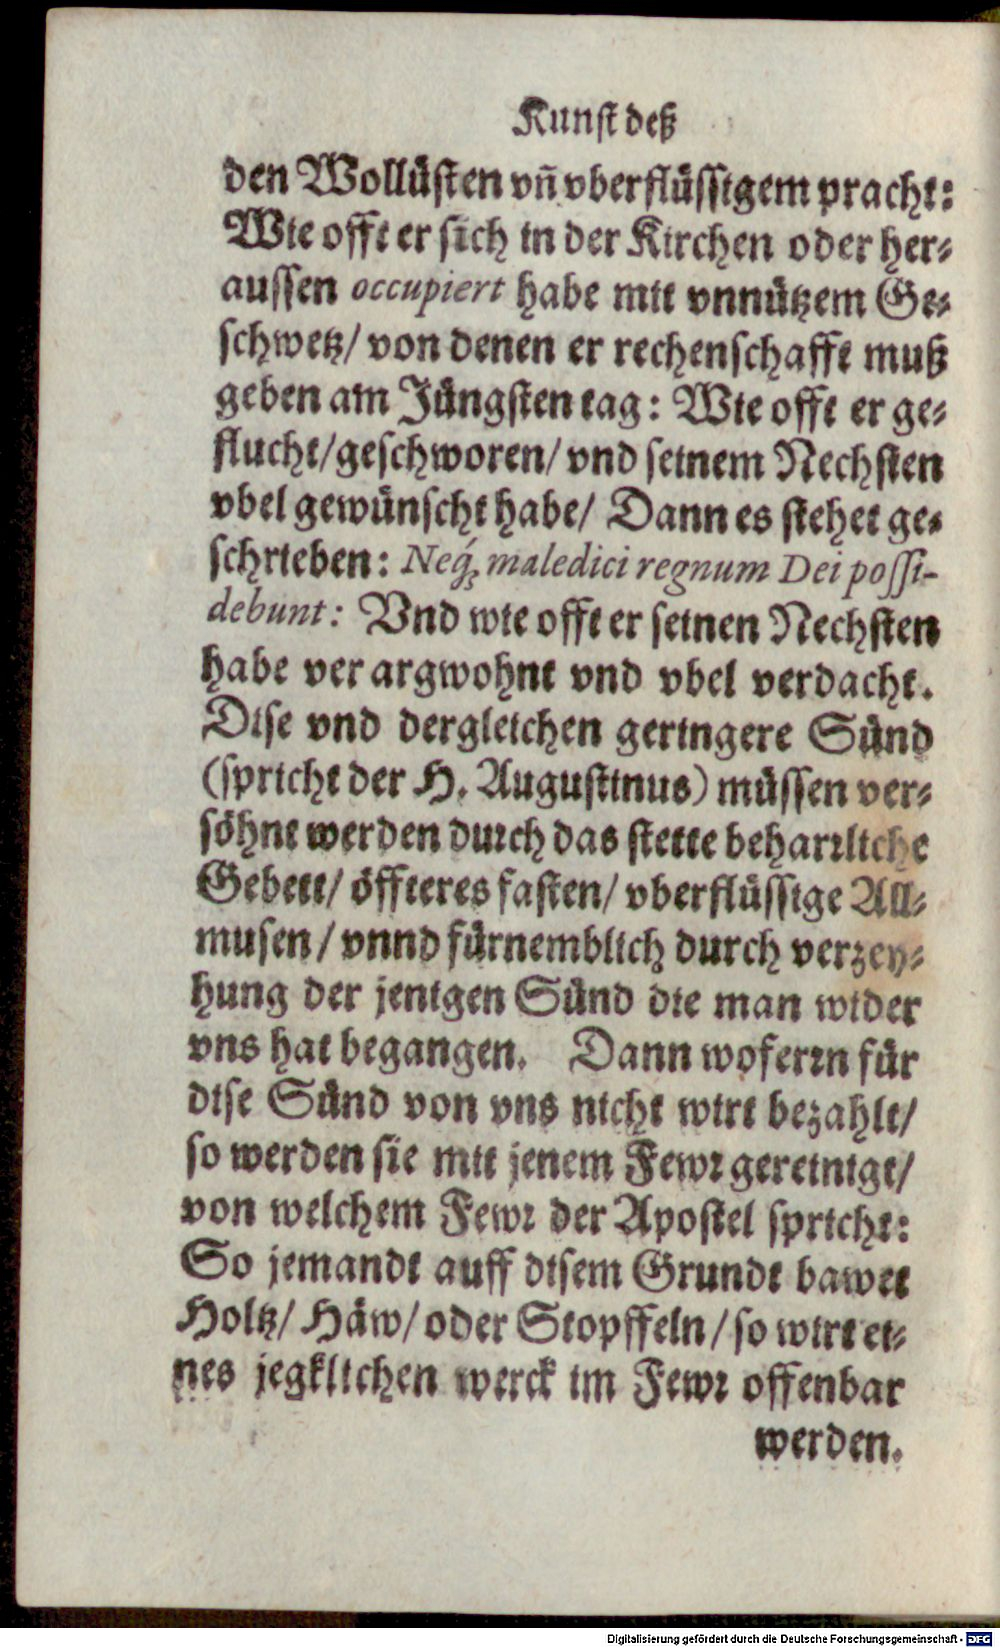 Kunst deß
den Wollůsten vñ vberflůssigem pracht:
Wie offt er sich in der Kirchen oder her-
aussen occupiert habe mit vnnůtzem Ge-
schwetz/ von denen er rechenschafft muß
geben am Jůngsten tag: Wie offt er ge-
flucht/geschworen/ vnd seinem Nechsten
vbel gewůnscht habe/ Dann es stehet ge-
schrieben: Neq́; maledici regnum Dei possi-
debunt: Vnd wie offt er seinen Nechsten
habe ver argwohnt vnd vbel verdacht.
Dise vnd dergleichen geringere Sůnd
(spricht der H. Augustinus) můssen ver-
sőhnt werden durch das stette beharrliche
Gebett/ őffteres fasten/ vberflůssige All-
musen/ vnnd fůrnemblich durch verzey-
hung der jenigen Sůnd die man wider
vns hat begangen. Dann woferrn fůr
dise Sůnd von vns nicht wirt bezahlt/
so werden sie mit jenem Fewr gereinigt/
von welchem Fewr der Apostel spricht:
So jemandt auff disem Grundt bawet
Holtz/ Häw/ oder Stopffeln/ so wirt ei-
nes jegklichen werck im Fewr offenbar
werden.
Digitalisierung gefördert durch die Deutsche Forschungsgemeinschaft - DFG